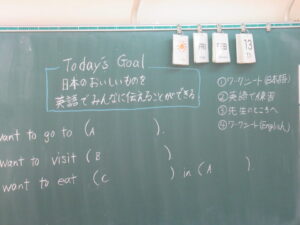 Today's Goal
日本のおいしいものを
英語でみんなに伝えることができる
FRI
13
①ワークシート(日本語)
②英語で練習
③先生のところへ
④ワークシート(English)
want to go to (A ).
want to visit (B )
want to eat (C ) in (A ).